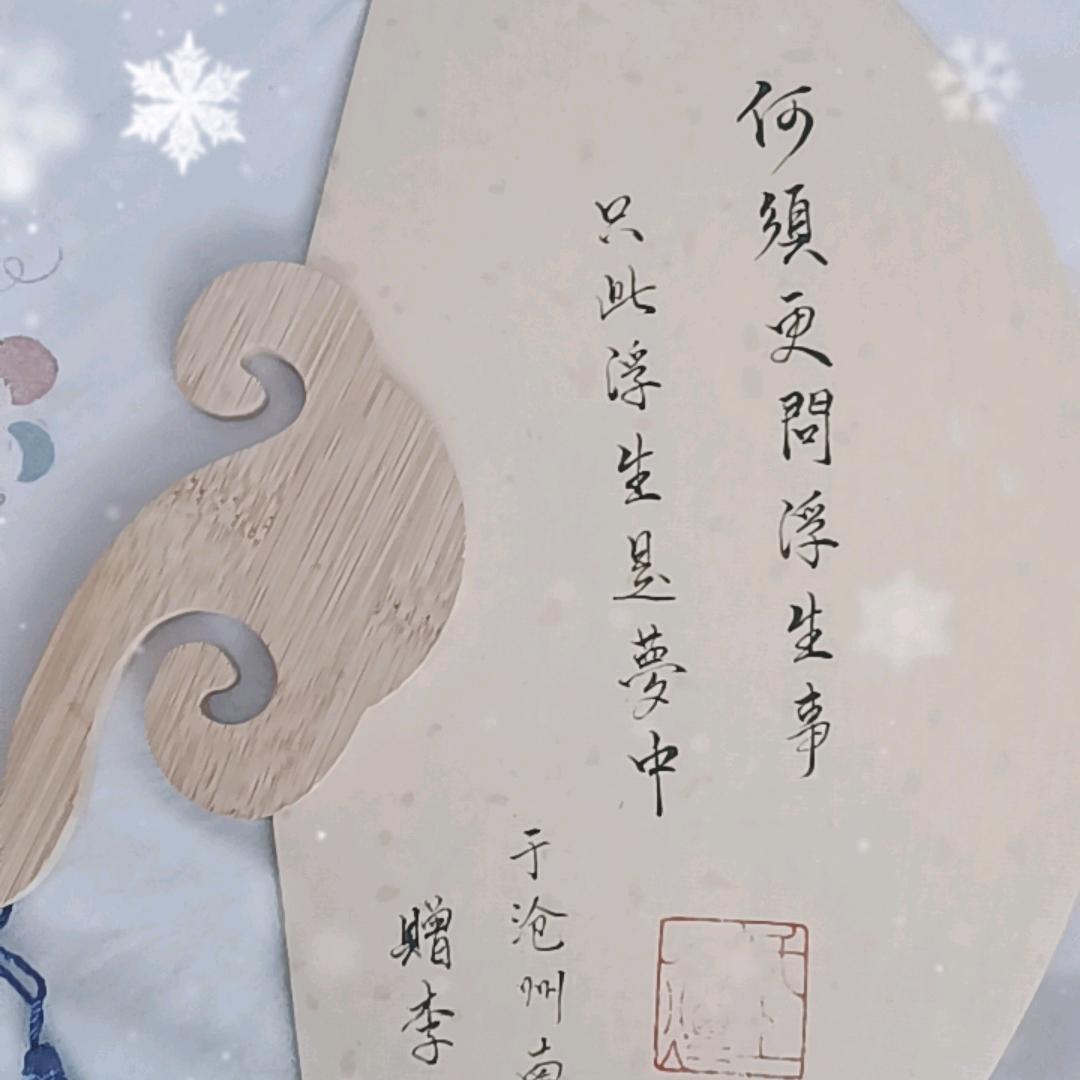 何須更問浮生事
只此浮生是夢中
于沧州南
贈李